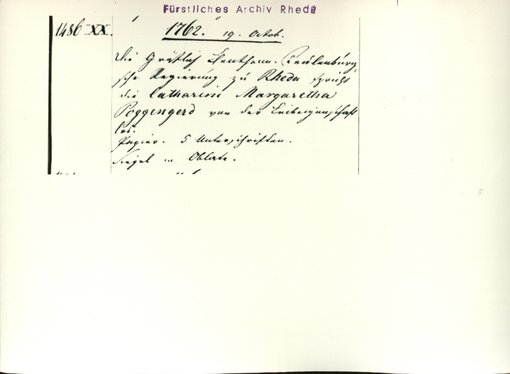 Fürstliches Archiv Rheda
1486 XX. 1762. 19. Octob.
Die Gräflich Bentheim-Tecklenburgi
sche Regierung zu Rheda spricht
die Catharine Margaretha
Poggengerd von der Leibeigenschaft
los.
Papier. 5 Unterschriften.
Siegel in Oblate.